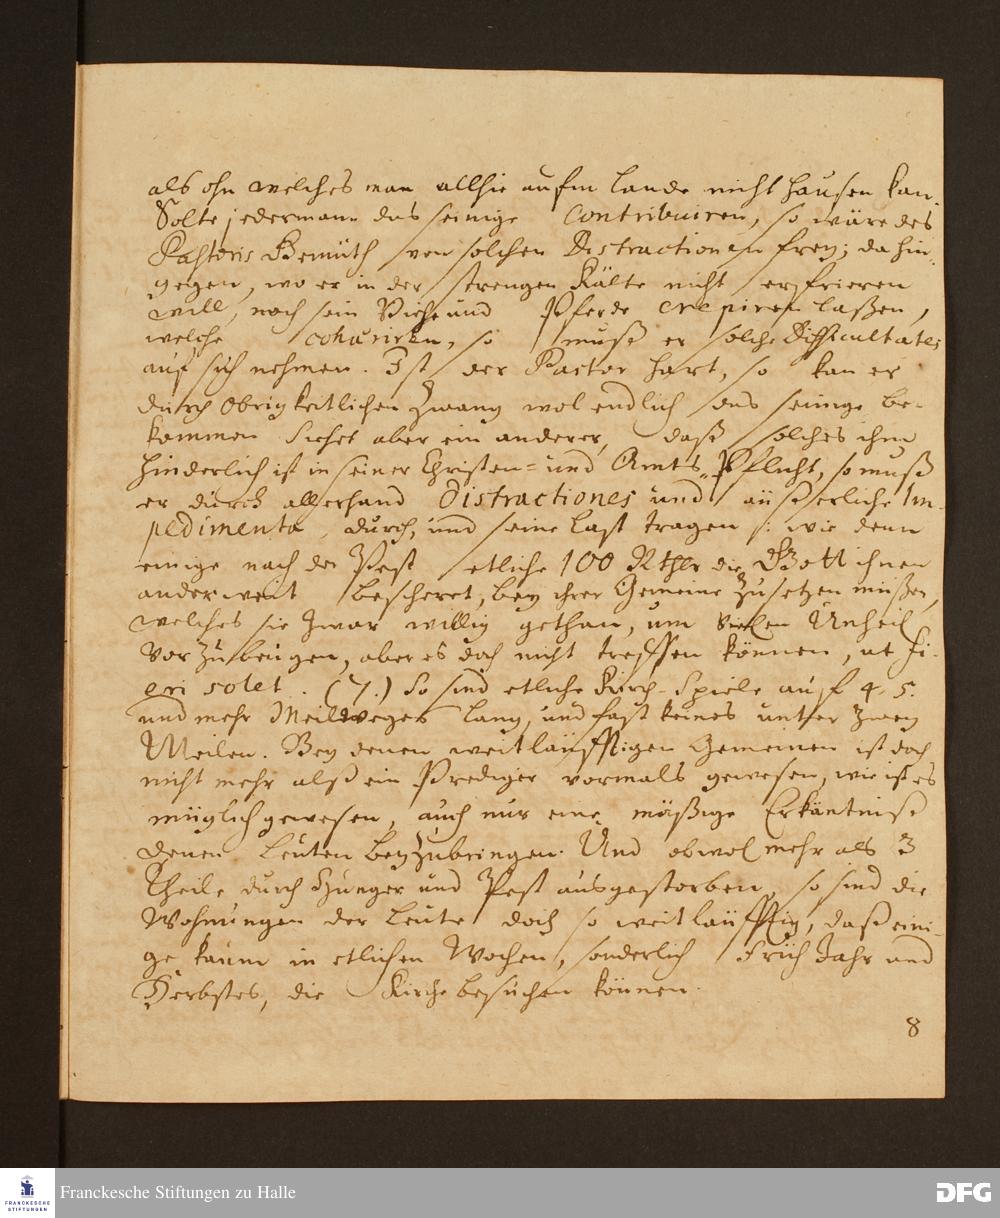 als ohn welches man allhie aufm Lande nicht hausen kan.
Solte jedermann das seinige contribuiren, so wäre des
Pastoris Gemüth von solchen Distractionen frey; dahin„
gegen, wo er in der strengen Kälte nicht erfrieren
will, noch sein Viehe und Pferde crepiren laßen,
welche so muß er solche Difficultates
auf sich nehmen. Ist der Pastor hart, so kan er
durch Obrigkeitlichen Zwang wol endlich das seinige be-
kommen Siehet aber ein anderer, daß solches ihm
hinderlich ist in seiner Christen= und Amts„Pflicht, so muß
er durch allerhand Distractiones und äüßerliche Im-
pedimenta, durch, und seine Last tragen : wie denn
einige nach der Pest etliche 100 Rthlr die Gott ihnen
anderweit bescheret, bey ihrer Gemeine zusetzen müßen,
welches sie zwar willig gethan, um vielen Unheil
vorzubeugen, aber es doch nicht treffen können, ut fi-
eri solet. (7.) So sind etliche Kirch-Spiele auf 4. 5.
und mehr Meilweges lang, und fast keines unter zwey
Meilen. Bey denen weitläufftigen Gemeinen ist doch
nicht mehr alß ein Prediger vormals gewesen, wie ist es
müglich gewesen, auch nur eine mäßige Erkäntniß
denen Leuten beyzubringen. Und obwol mehr als 3
Theile durch Hunger und Pest ausgestorben, so sind die
Wohnungen der Leute doch so weitläufftig, daß eini-
ge kaum in etlichen Wochen, sonderlich Früh Jahr und
Herbstes, die Kirche besuchen können.
8
FRANCKESCHE
STIFTUNGEN
Franckesche Stiftungen zu Halle
DFG